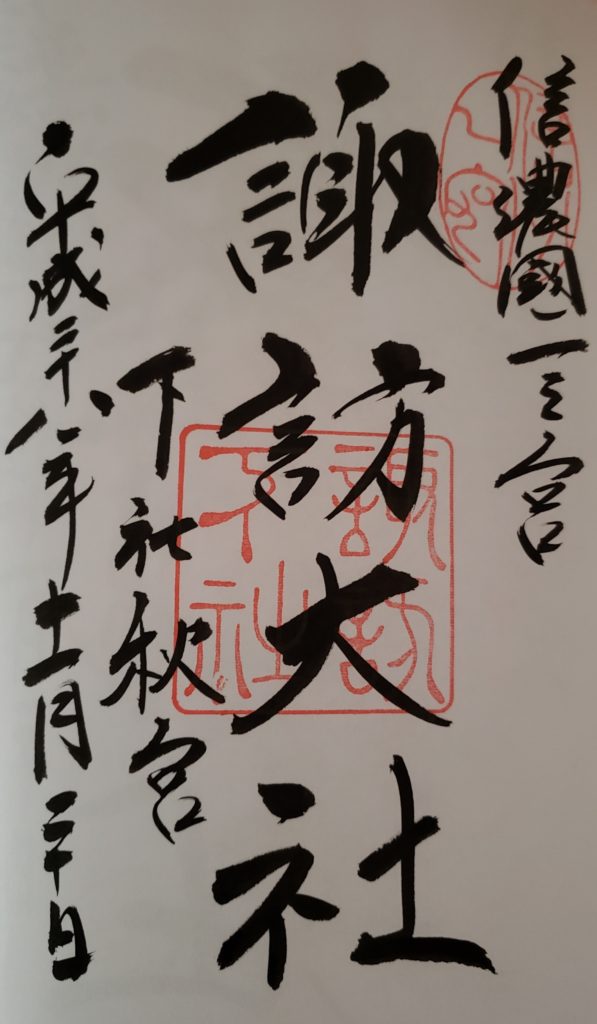 信濃國一之宮
諏訪大社
諏訪
下社
下社秋宮
平成二十八年十一月二十日